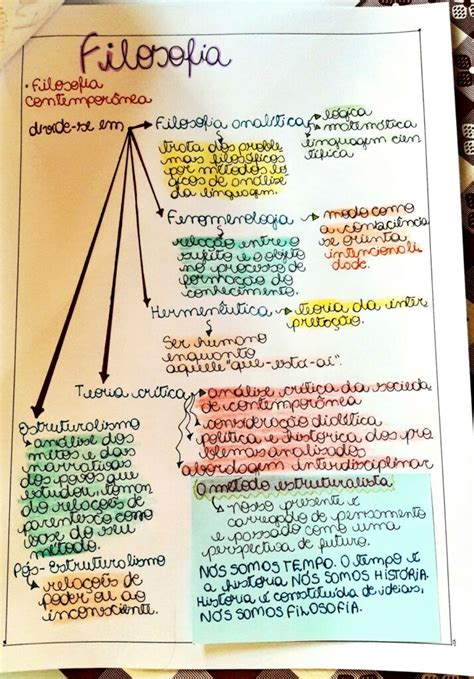 Filosofia
• Filosofia
contemporânea
divide-se em
Filosofia analítica
lógica
matemática
linguagem cien
tífica
trata dos proble
mas filosóficos
por métodos ló
gicos de análise
da linguagem.
Fenomenologia
modo como
a consciência
se orienta
intencionali
dade.
relação entre o
sujeito e o objeto
no processo de
formação do
conhecimento.
Hermenêutica
teoria da inter
pretação.
Ser humano
enquanto
aquele "que-está-aí".
Teoria crítica
análise crítica da socieda
de contemporânea
consideração didática
política e histórica dos pro
blemas analisados
abordagem interdisciplinar
Estruturalismo
análise dos
mitos e das
narrativas
dos povos que
estudou, toman
do relações de
parentesco como
base do seu
método.
Pós-Estruturalismo
relações de
poder ou ao
inconsciente.
O método estruturalista
nosso presente é
carregado de pensamento
e passado como uma
perspectiva de futuro.
NÓS SOMOS TEMPO. O TEMPO É
a história NÓS SOMOS HISTÓRIA.
História é constituída de ideias,
NÓS SOMOS FILOSOFIA.